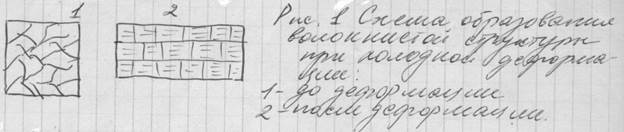 1
2
Рис. 1 Схема образования
волокнистой структуры
при холодной деформа-
ции:
1- до деформации
2- после деформации.